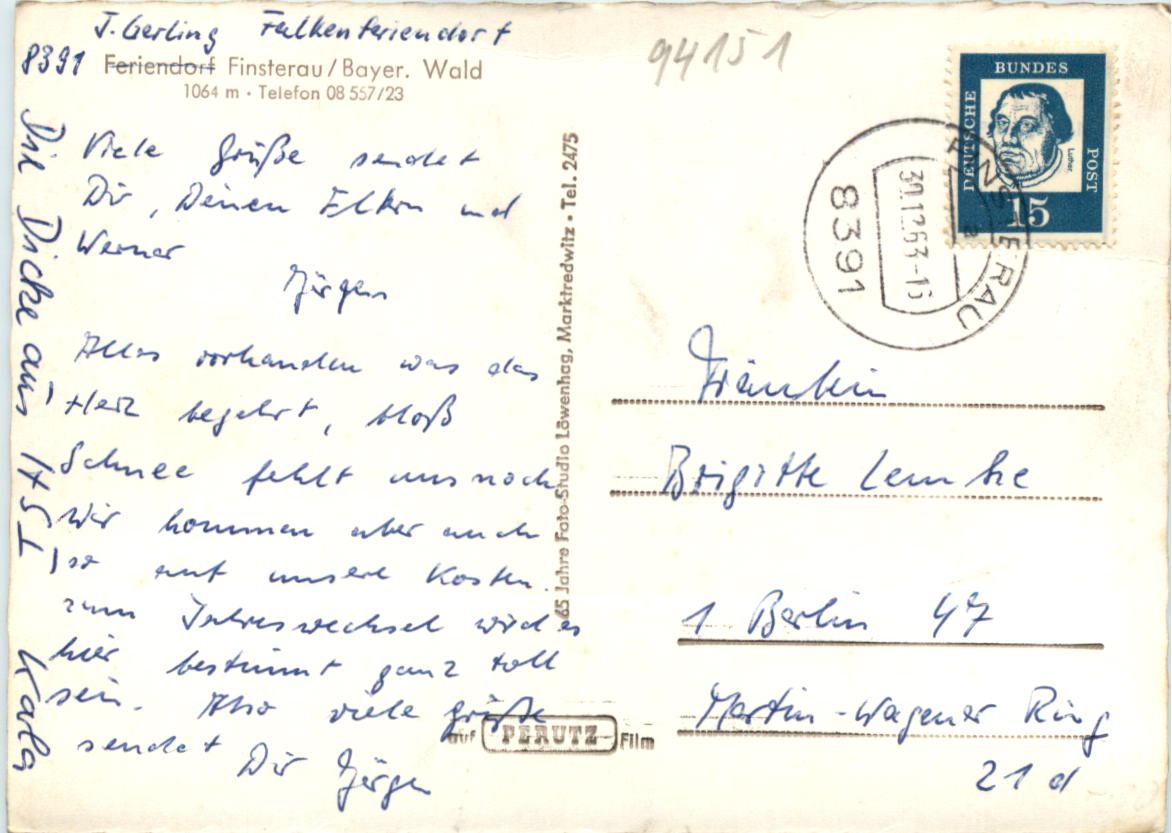 J. Gerling Falkenferiendorf
8391 Feriendorf Finsterau/Bayer. Wald
1064 m · Telefon 08 557/23
Viele Grüße sendet
Dir, Deinen Eltern und
Werner
Jürgen
Alles vorhanden was das
Herz begehrt, bloß
Schnee fehlt uns noch
Wir kommen aber auch
so auf unsere Kosten.
zum Jahreswechsel wird es
hier bestimmt ganz toll
sein. Also viele grüße
sendet Dir Jürgen
Die Dicke aus
Karla
65 Jahre Foto-Studio Löwenhag, Marktredwitz · Tel. 2475
auf PERUTZ Film
94151
DEUTSCHE BUNDES POST
Luther
15
FINSTERAU
a
30.12.63-16
8391
Fräulein
Brigitte Lemke
1 Berlin 47
Martin-Wagener Ring
21 d